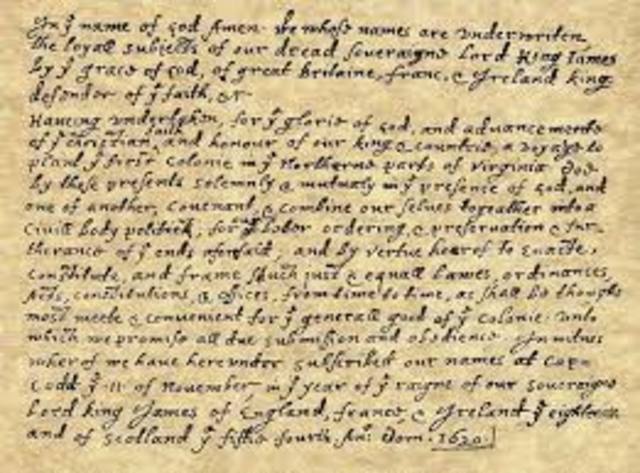 In ẙ name of God Amen. We whose names are underwriten
the loyall subjects of our dread soveraigne Lord King James
by ẙ grace of God, of great Britaine, franc, & Ireland king,
defender of ẙ faith, &c
Haveing undertaken, for ẙ glorie of God, and advancemente
of ẙ christian faith and honour of our king & countrie, a voyage to
plant ẙ first colonie in ẙ Northerne parts of Virginia. Doe
by these presents solemnly & mutualy in ẙ presence of God, and
one of another, covenant, & combine our selves togeather into a
civill body politick; for our better ordering, & preservation & fur=
therance of ẙ ends aforesaid; and by vertue hearof to enacte,
constitute, and frame shuch just & equall Lawes, ordinances,
Acts, constitutions, & offices, from time to time, as shall be thought
most meete & convenient for ẙ generall good of ẙ colonie: unto
which we promise all due submission and obedience. In witnes
wherof we have hereunder subscribed our names at Cap=
Codd ẙ .11. of November, in ẙ year of ẙ raigne of our soveraigne
Lord king James of England, france, & Ireland ẙ eighteenth
and of Scotland ẙ fiftie fourth. An°: Dom. 1620.